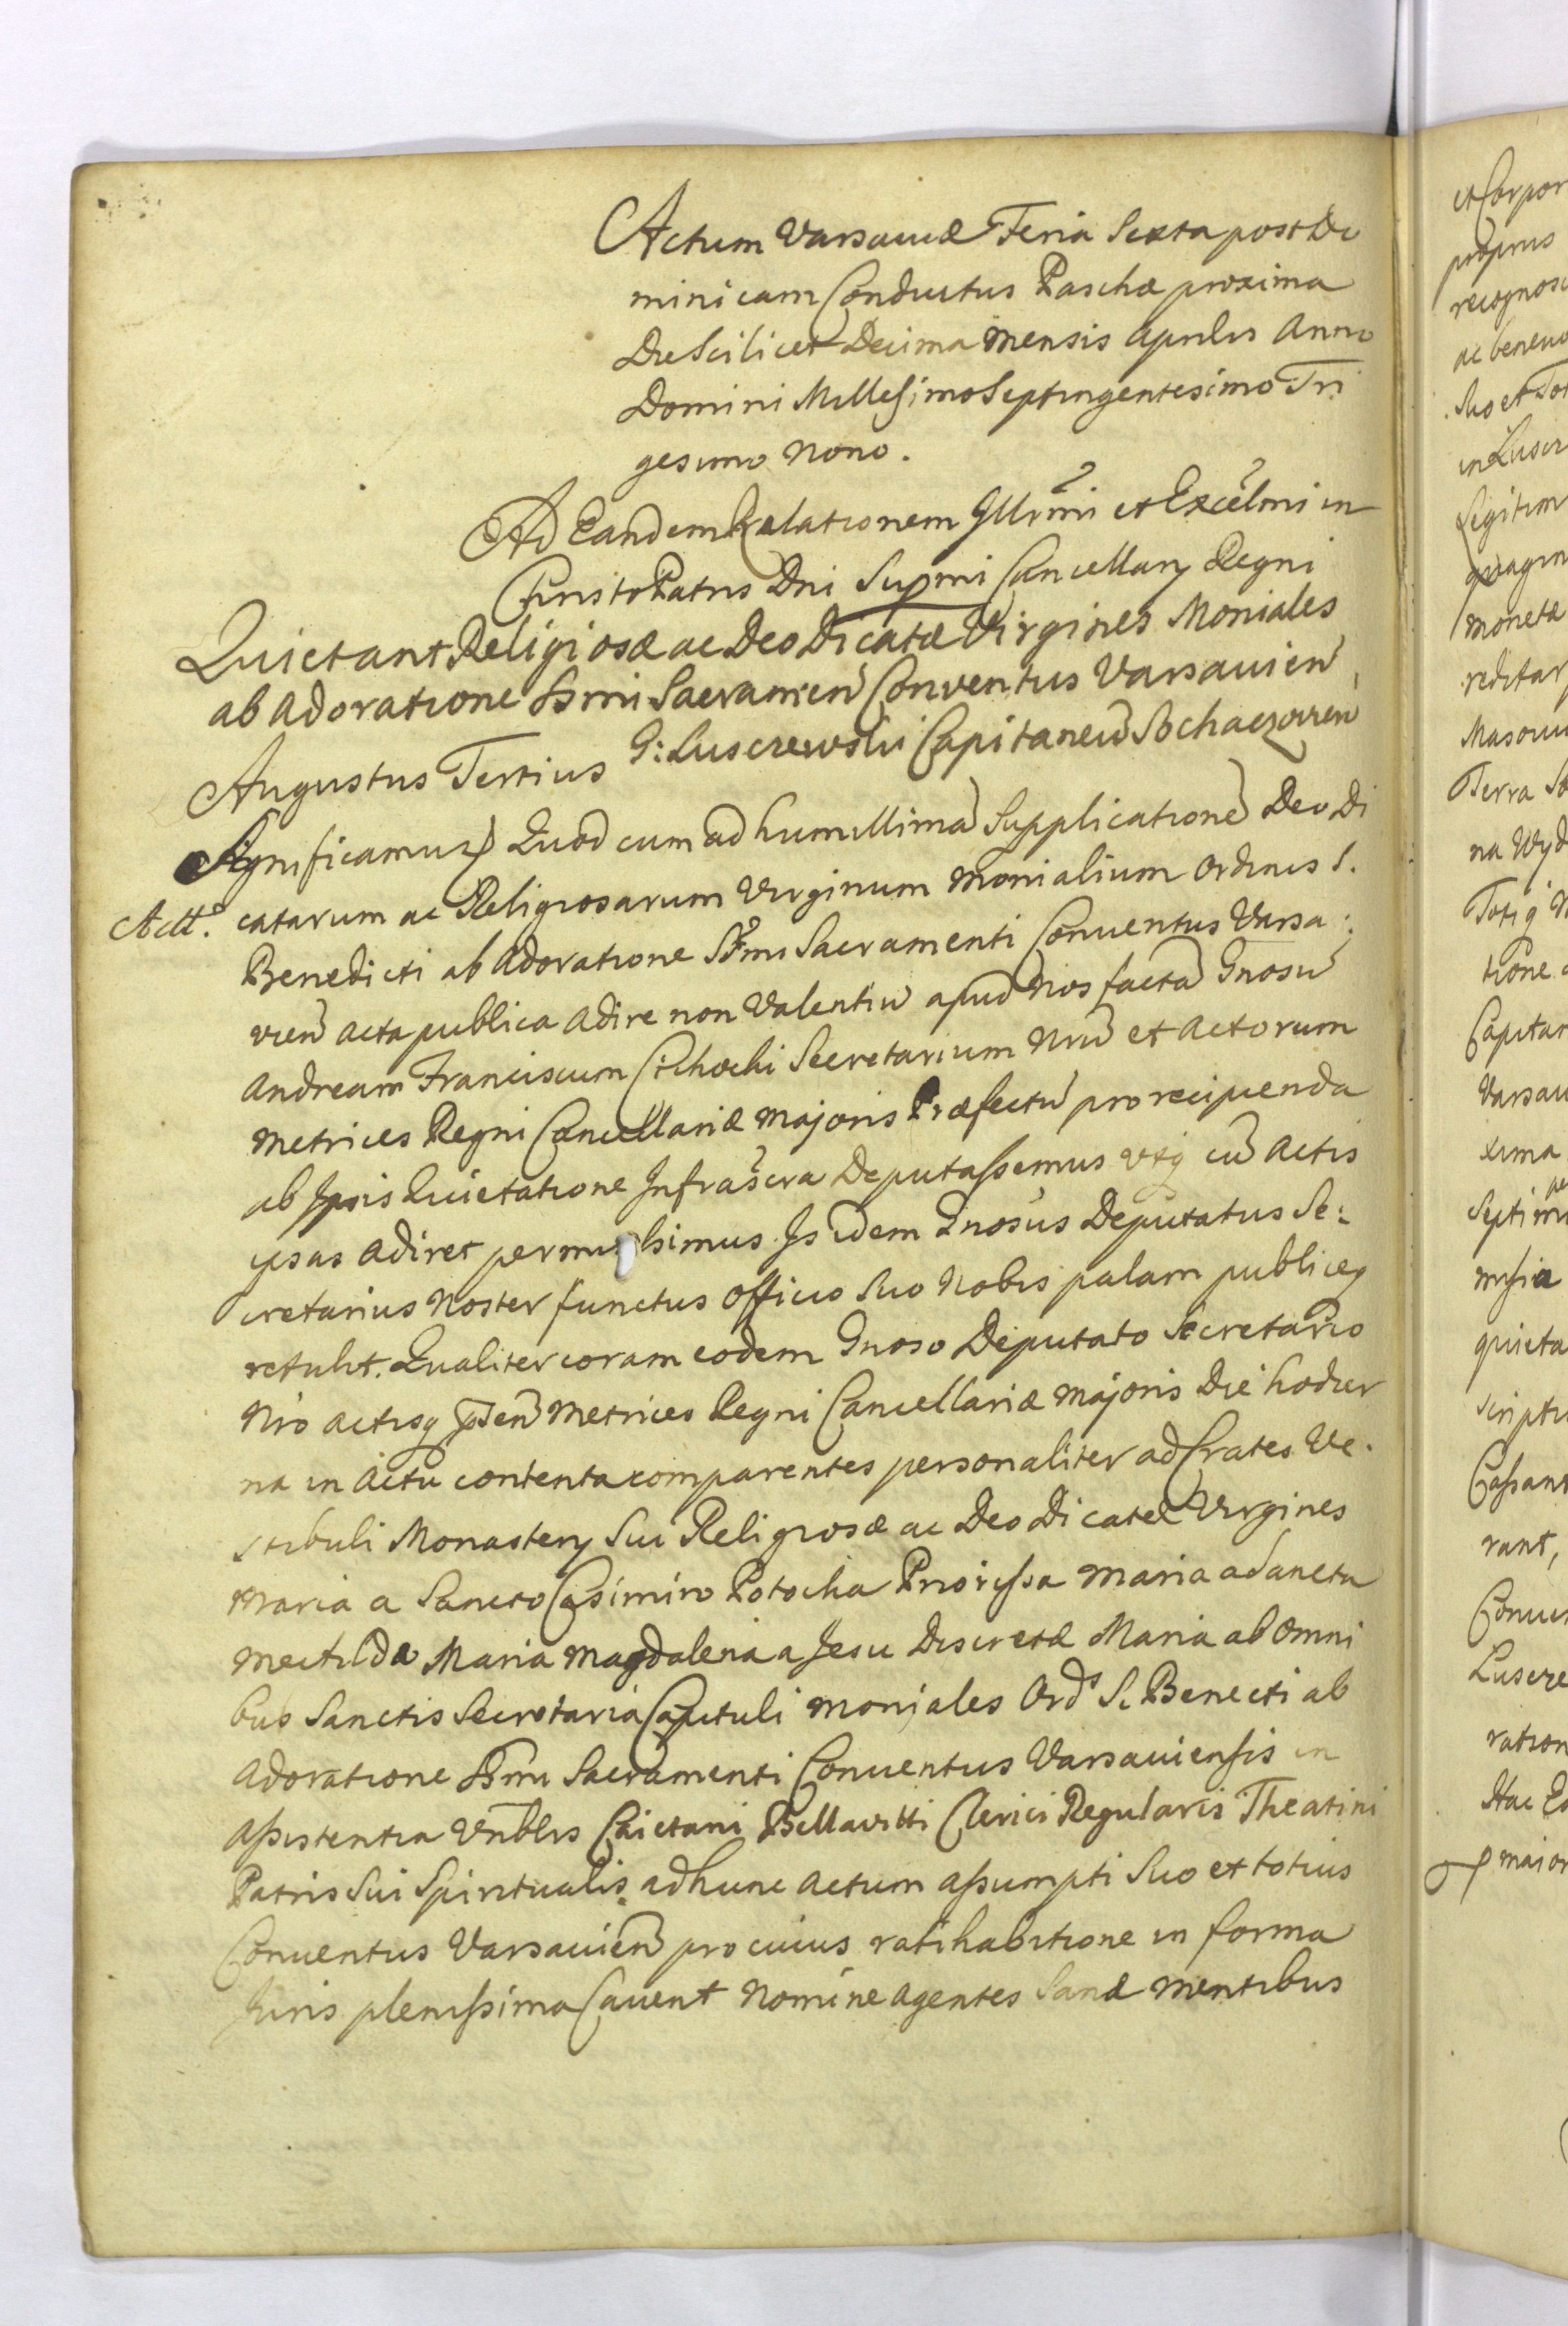 Actum Varsaviæ Feria Sexta post Do
minicam Conductus Paschæ proxima
Die Scilicet Decima mensis Aprilis Anno
Domini Millesimo Septingentesimo Tri
gesimo Nono.
Ad Eandem Relationem Illrmi et Excelmi in
Christo Patris Dni Supmi Cancellarij Regni
Quietant Religiosæ ac Deo Dicatæ Virgines Moniales
ab Adoratione SSmi Sacramen Conventus Varsavien
G: Luscrewski Capitaneū Sochaczovien
Augustus Tertius
Significamus Quod cum ad humillimā Supplicationē Deo Di
Actt. catarum ac Religiosarum Virginum Monialium Ordinis S.
Benedicti ab Adoratione SSmi Sacramenti Conventus Varsa:
vien Acta publica Adire non Valentiū apud Nos factā Gnosū
Andream Franciscum Cichocki Secretarium Nrū et Actorum
Metrices Regni Cancellariæ Majoris Præfectū pro recipienda
ab Ipsis Quietatione Infrascra Deputassemus utq cū Actis
ipsas adiret permisissimus. Is idem Gnosus Deputatus Se:
cretarius Noster functus Officio Suo Nobis palam publiceq
retulit. Qualiter coram eodem Gnoso Deputato Secretario
Nro actisq Psen Metrices Regni Cancellariæ Majoris Die hodier
na in Actu contenta comparentes personaliter ad Crates Ve.
stibuli Monasterij Sui Religiosæ ac Deo Dicatæ Virgines
Maria a Sancto Casimiro Potocka Priorissa Maria a Sancta
Mectilda Maria Magdalena a Jesu Discretæ Maria ab Omni
bus Sanctis Secretaria Capituli Moniales Ord S. Benecti ab
Adoratione SSmi Sacramenti Conventus Varsaviensis in
Assistentia Vnblis Caietani Bellavitti Clerici Regularis Theatini
Patris Sui Spiritualis ad hunc Actum assumpti Suo et totius
Conventus Varsavien pro cuius ratihabitione in forma
Juris plenissima Cavent Nomine Agentes Sanæ mentibus
et Corpor
proprus
recognosc
ac benevo
Suo et Tot
in Luscr
Legitim
quagin
monetæ
reditar
Masovi
Terra So
na Wyd
Totiq
tione
Capitan
Varsav
xima
Septim
missia
quieta
scriptu
Cassant
rant,
Conven
Luscre
ration
Hac Ea
major